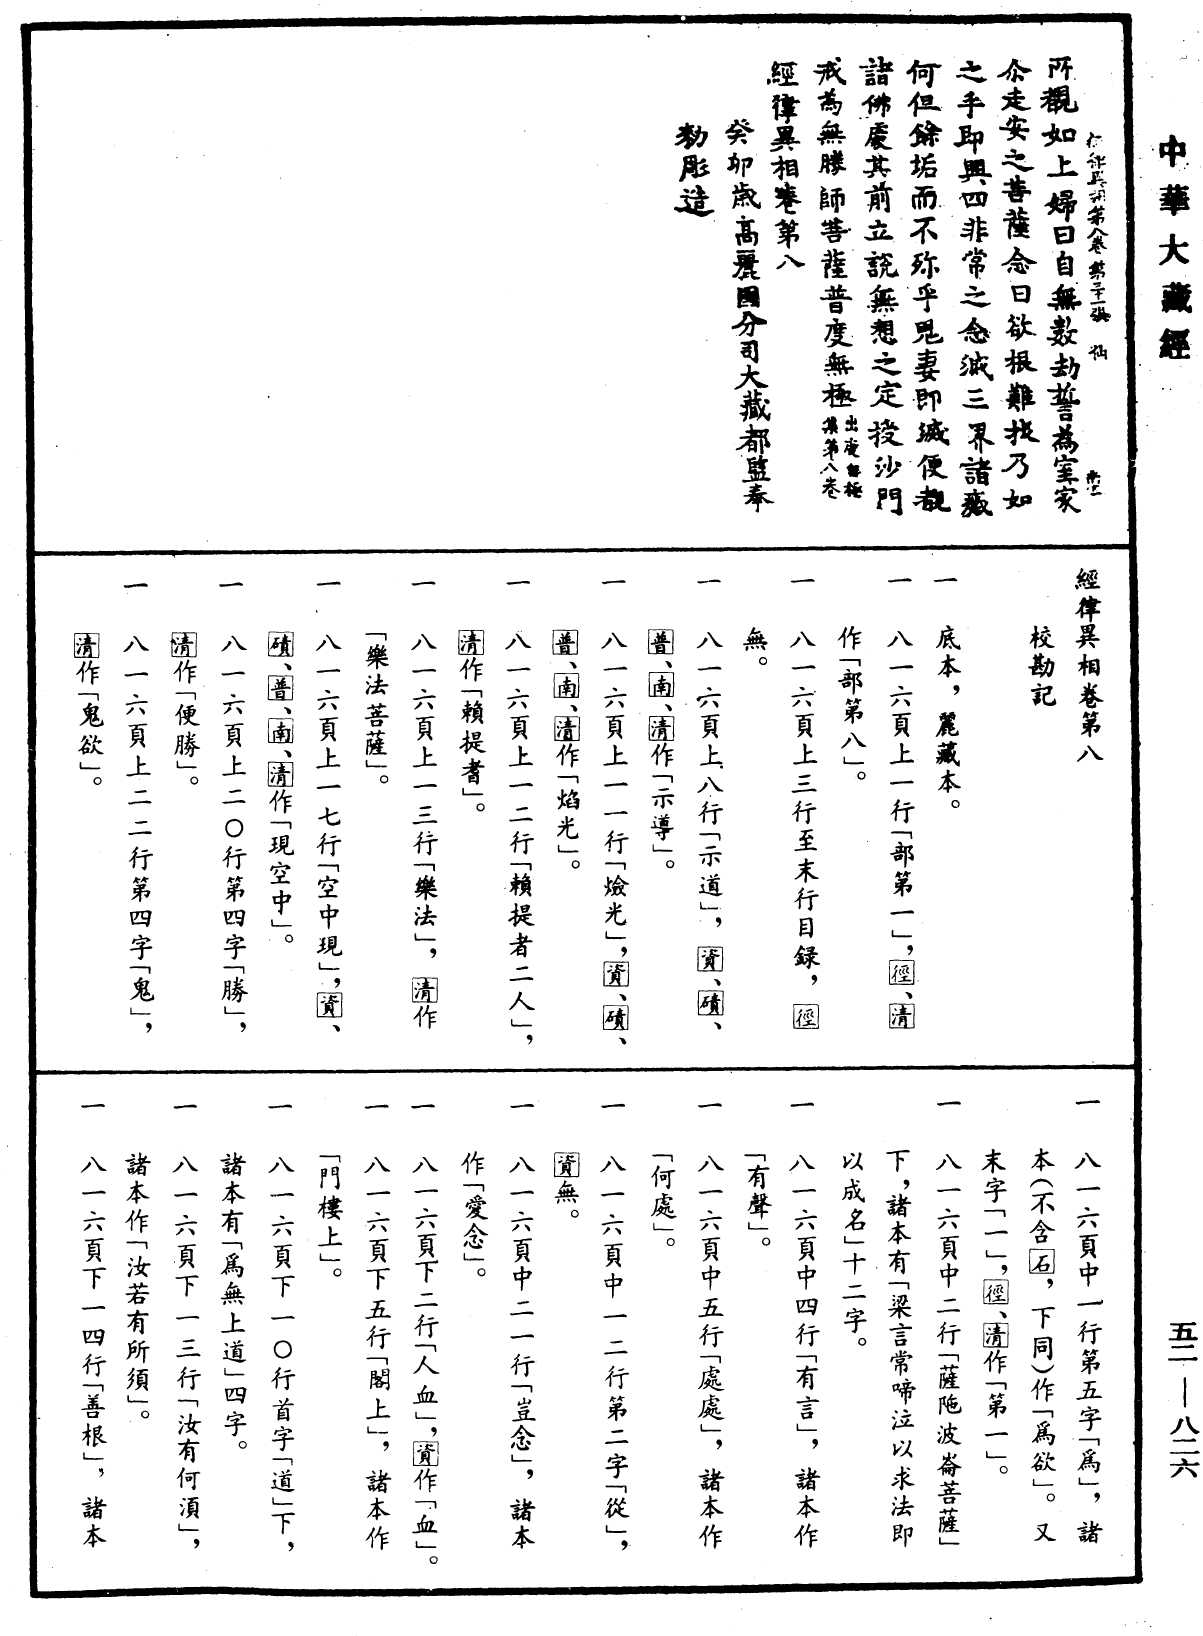 中華大藏經
五二—八二六
所觀如上婦曰自無數劫誓為室家
尒走安之菩薩念曰欲根難拔乃如
之乎即興四非常之念滅三界諸穢
何但餘垢而不殄乎鬼妻即滅便覩
諸佛處其前立說無想之定授沙門
戒為無勝師菩薩普度無極出度無極集第八卷
經律異相卷第八
癸卯歲高麗國分司大藏都監奉
勑彫造
經律異相卷第八
校勘記
一 底本，麗藏本。
一 八一六頁上一行「部第一」，徑、清
作「部第八」。
一 八一六頁上三行至末行目錄，徑
無。
一 八一六頁上八行「示道」，資、磧、
普、南、清作「示導」。
一 八一六頁上一一行「燄光」，資、磧、
普、南、清作「焰光」。
一 八一六頁上一二行「賴提者二人」，
清作「賴提耆」。
一 八一六頁上一三行「樂法」，清作
「樂法菩薩」。
一 八一六頁上一七行「空中現」，資、
磧、普、南、清作「現空中」。
一 八一六頁上二〇行第四字「勝」，
清作「便勝」。
一 八一六頁上二二行第四字「鬼」，
清作「鬼欲」。
一 八一六頁中一行第五字「爲」，諸
本（不含石，下同）作「爲欲」。又
末字「一」，徑、清作「第一」。
一 八一六頁中二行「薩陁波崙菩薩」
下，諸本有「梁言常啼泣以求法即
以成名」十二字。
一 八一六頁中四行「有言」，諸本作
「有聲」。
一 八一六頁中五行「處處」，諸本作
「何處」。
一 八一六頁中一二行第二字「從」，
資無。
一 八一六頁中二一行「豈念」，諸本
作「愛念」。
一 八一六頁下二行「人血」，資作「血」。
一 八一六頁下五行「閣上」，諸本作
「門樓上」。
一 八一六頁下一〇行首字「道」下，
諸本有「爲無上道」四字。
一 八一六頁下一三行「汝有何湏」，
諸本作「汝若有所須」。
一 八一六頁下一四行「善根」，諸本